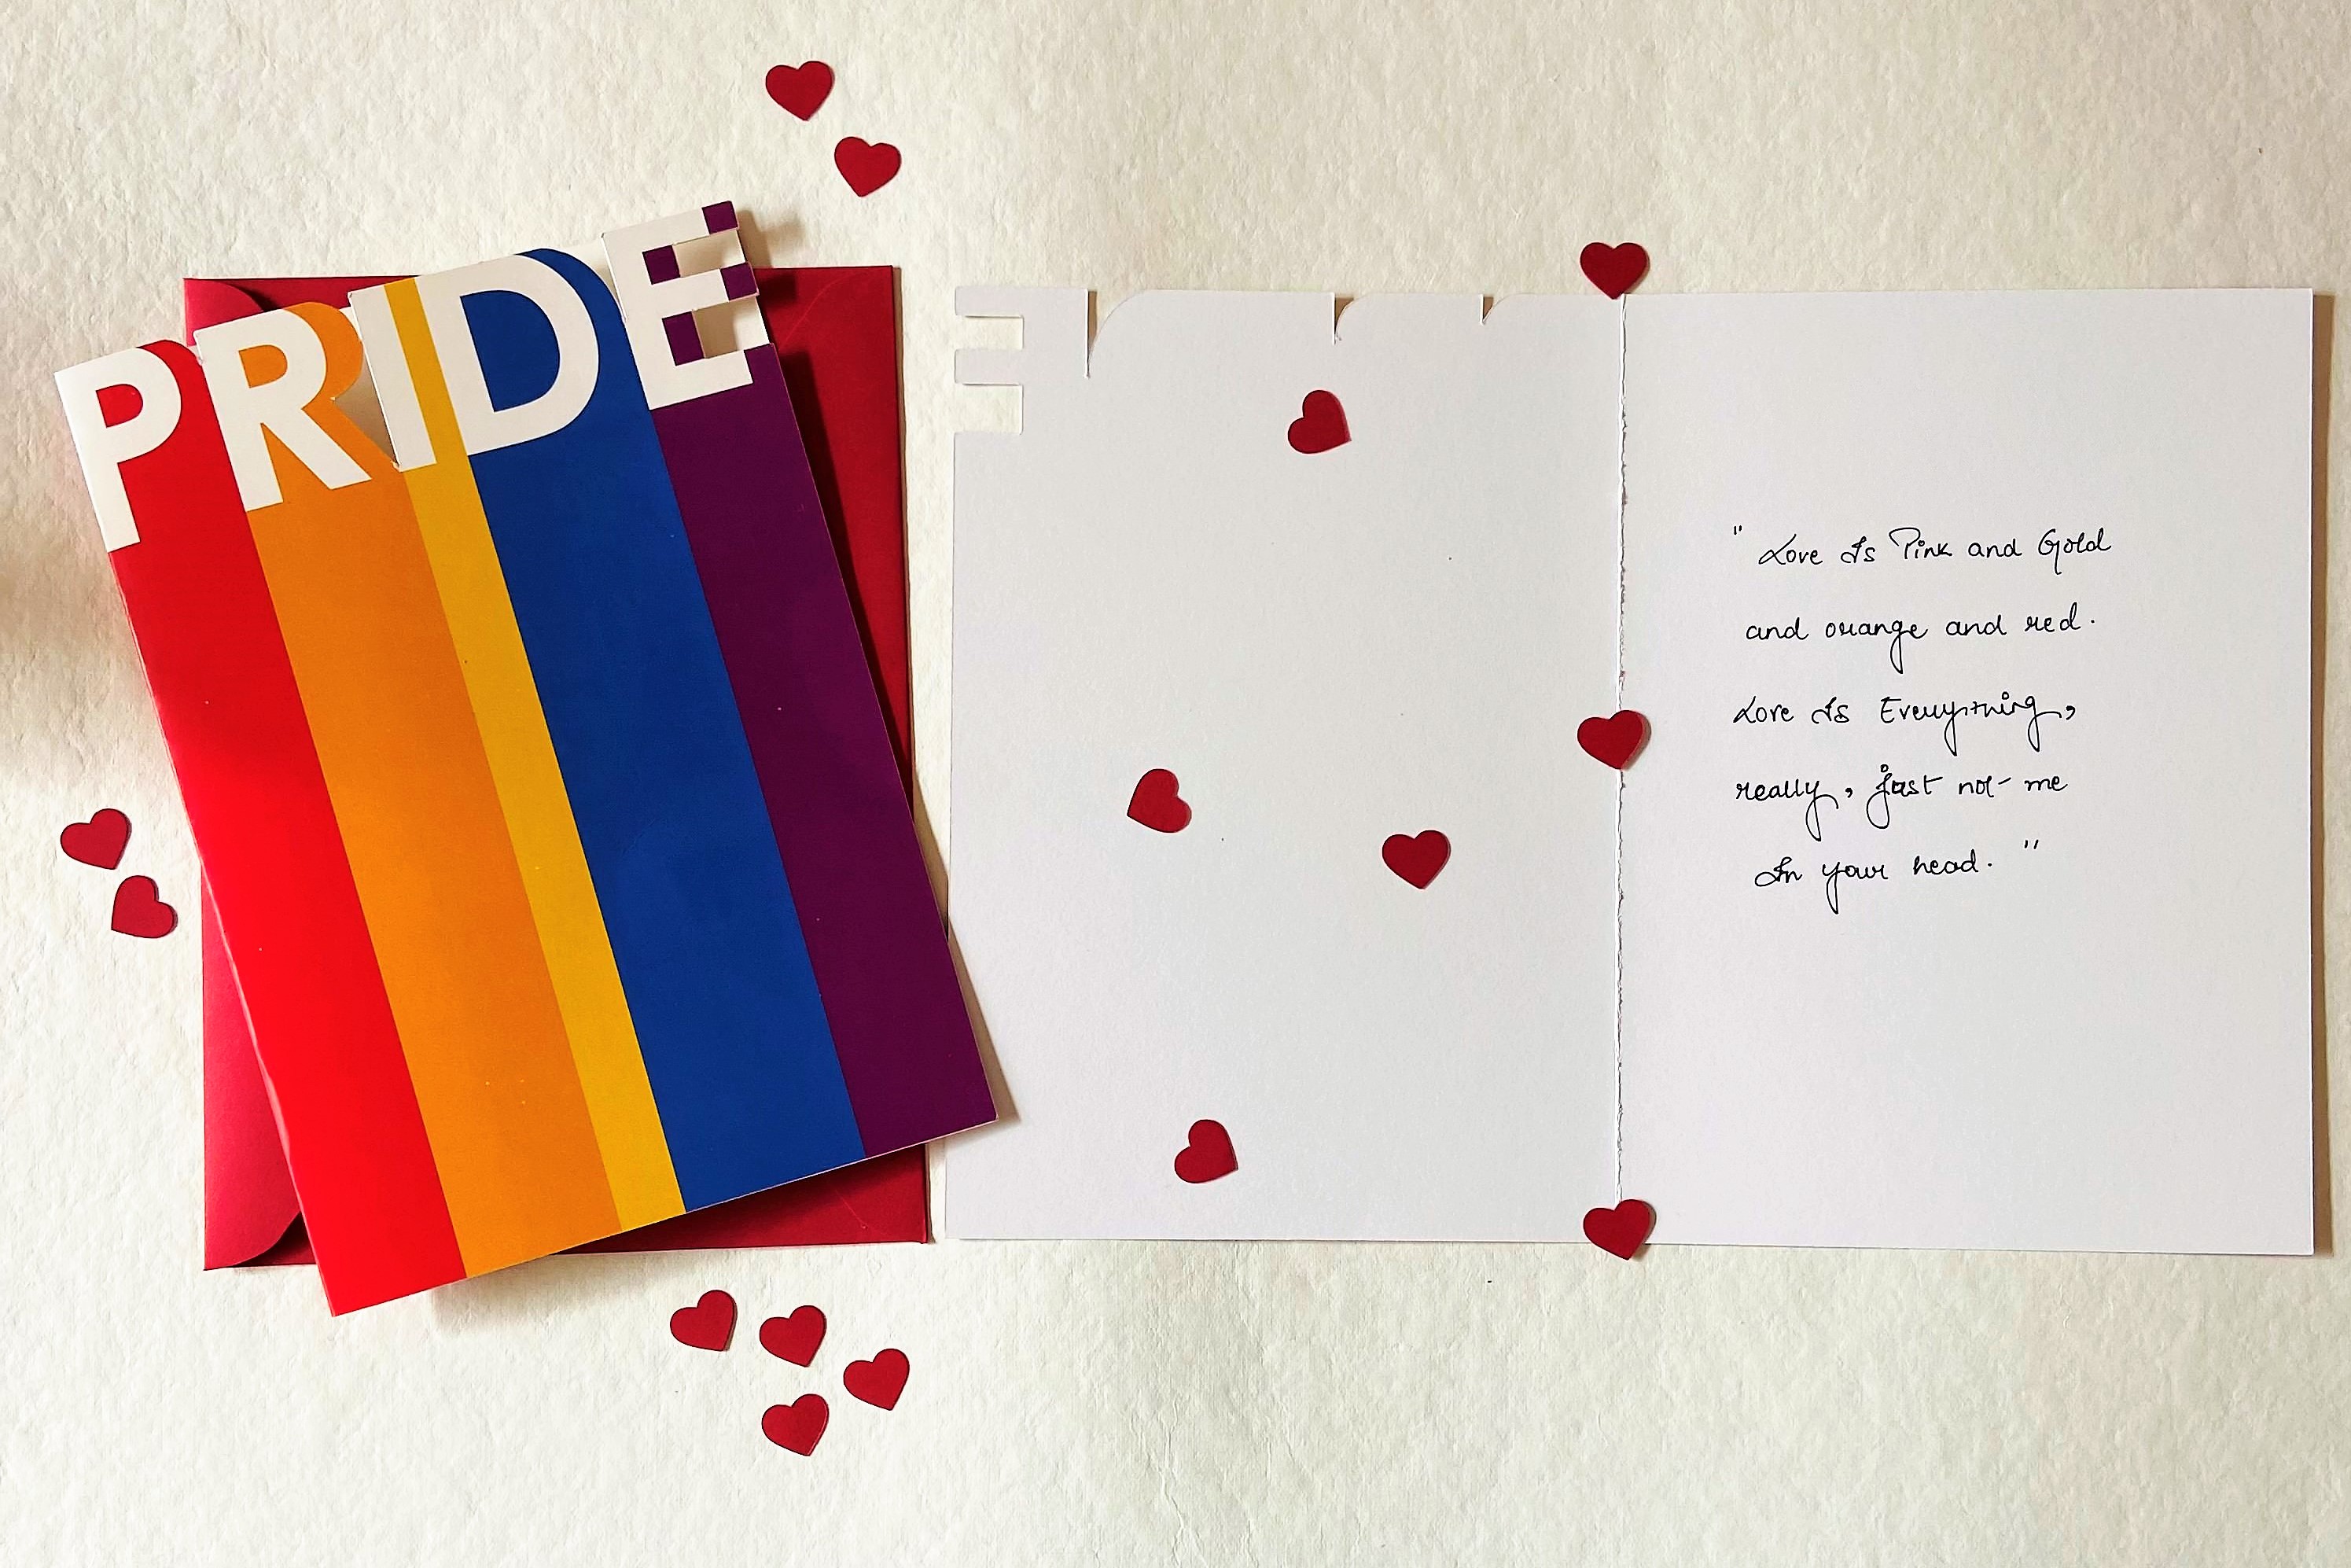 PRIDE
" Love Is Pink and Gold
and orange and red.
Love Is Everything,
really, just not me
In your head. "